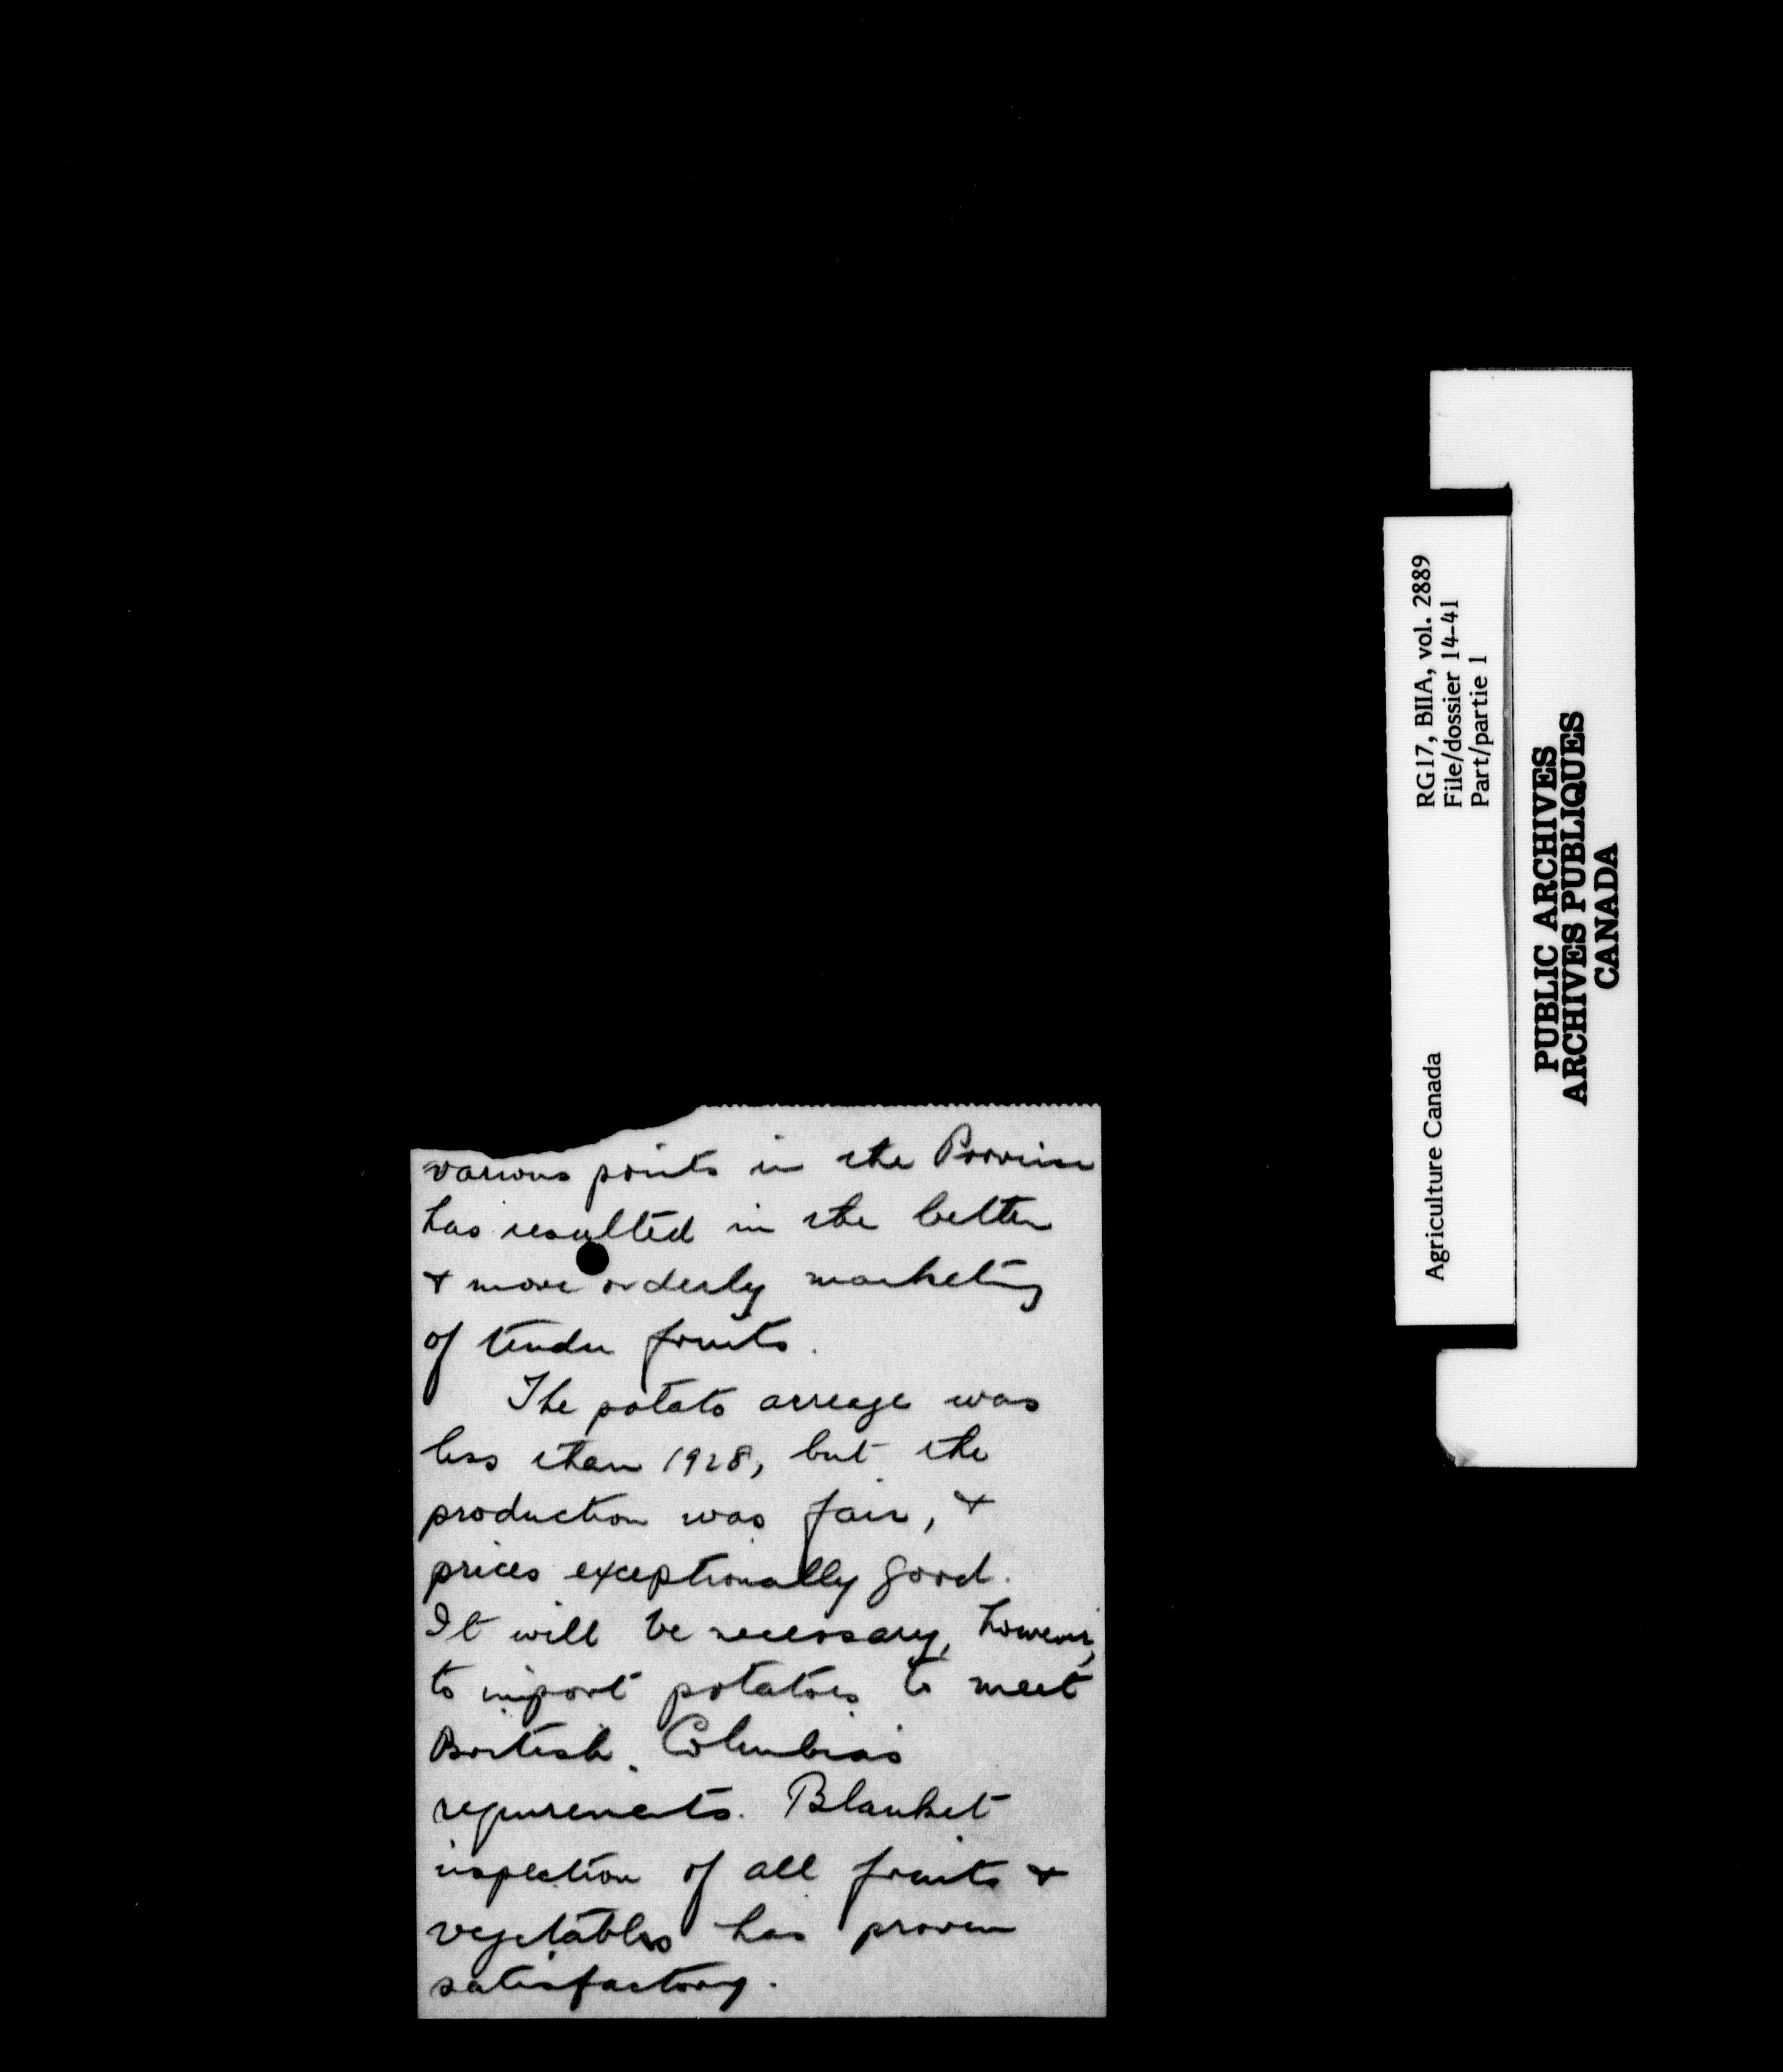 various points in the Province
has resulted in the better
& more orderly marketing
of tender fruits.
The potato acreage was
less than 1928, but the
production was fair, &
prices exceptionally good.
It will be necessary, however,
to import potatoes to meet
British Columbia's
requirements. Blanket
inspection of all fruits &
vegetables has proven
satisfactory.
RG17, BIIA, vol. 2889
File/dossier 14-41
Part/partie 1
Agriculture Canada
PUBLIC ARCHIVES
ARCHIVES PUBLIQUES
CANADA